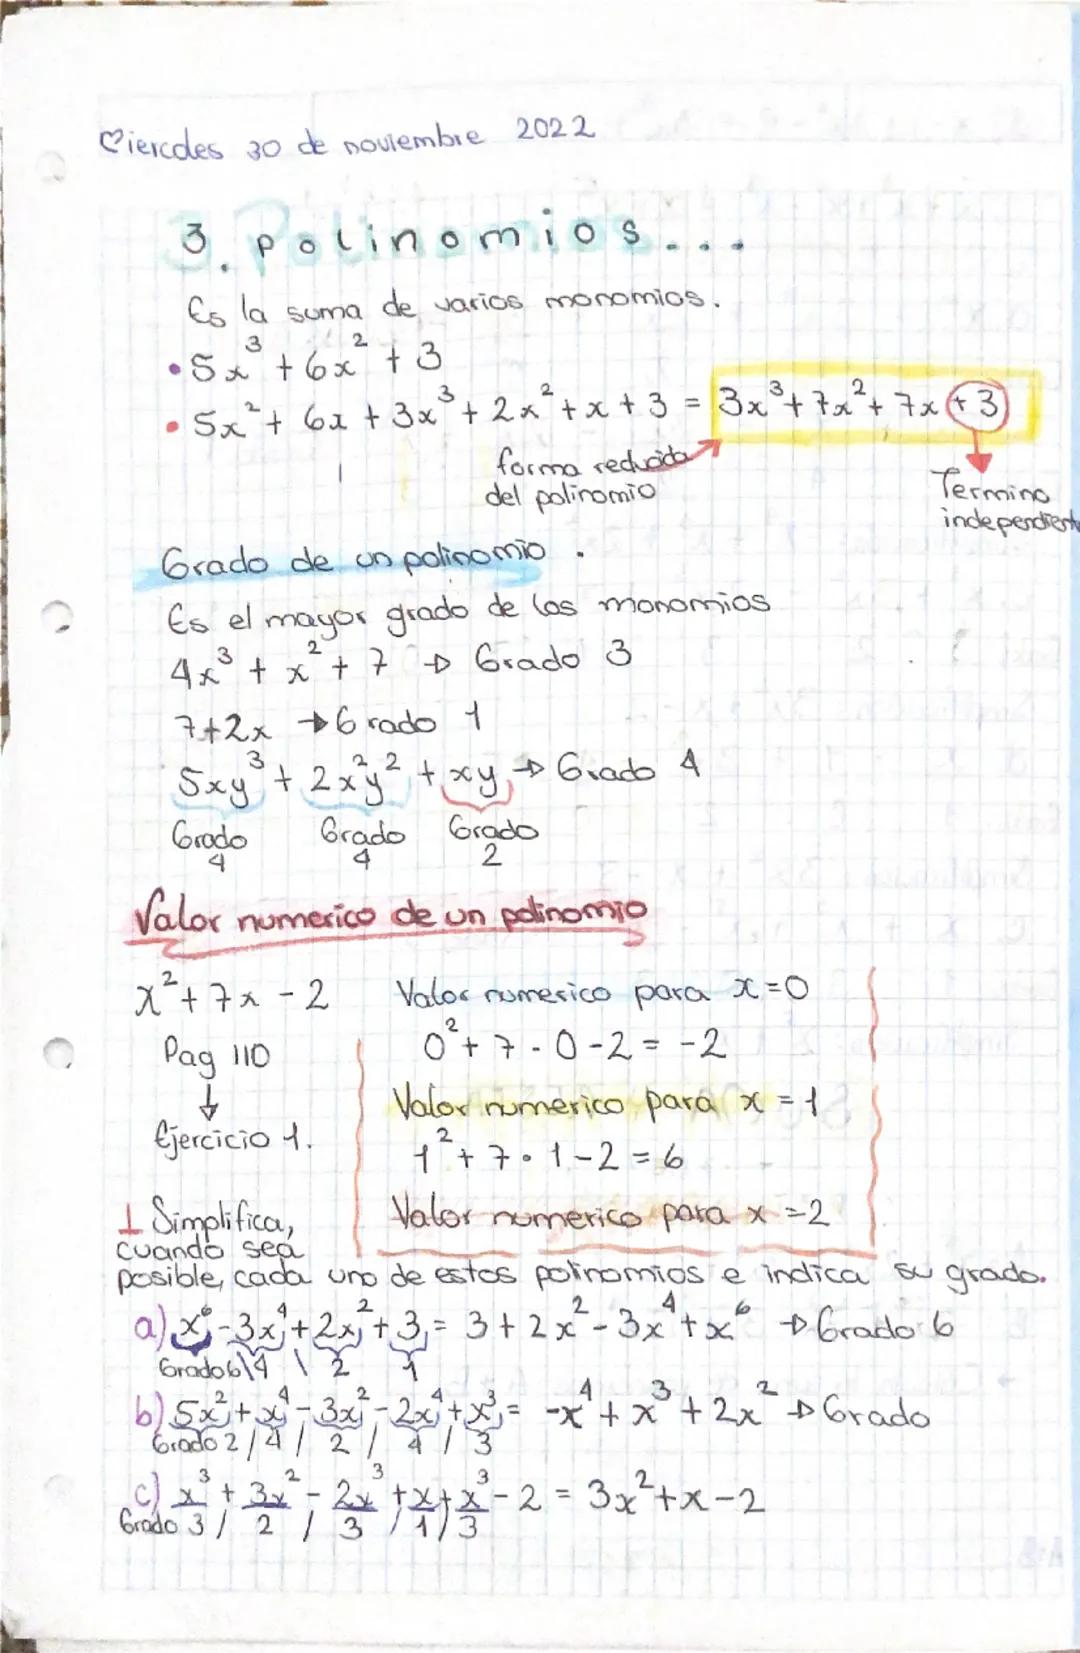 Miercoles 30 de noviembre 2022
3. Polinomios...
Es la suma de varios monomios.
• 5x³ + 6x² + 3
• 5x² + 6x + 3x³ + 2x² + x + 3 = 3x³ + 7x² + 7x + 3
forma reducida
del polinomio
Termino
independiente
Grado de un polinomio.
Es el mayor grado de los monomios
4x³ + x² + 7 → Grado 3
7+2x → Grado 1
5xy³ + 2x²y² + xy → Grado 4
Grado 4 Grado 4 Grado 2
Valor numerico de un polinomio
x² + 7x - 2 Valor numerico para x=0
0² + 7 · 0 - 2 = -2
Pag 110
↓
Ejercicio 1.
Valor numerico para x = 1
1² + 7 · 1 - 2 = 6
Valor numerico para x = 2
1 Simplifica,
cuando sea
posible, cada uno de estos polinomios e indica su grado.
a) x⁶ - 3x⁴ + 2x² + 3 = 3 + 2x² - 3x⁴ + x⁶ → Grado 6
Grado 6 \ 4 \ 2 1
b) 5x² + x⁴ - 3x² - 2x⁴ + x³ = -x⁴ + x³ + 2x² → Grado
Grado 2 / 4 / 2 / 4 / 3
c) x³ + 3x² - 2x³ + x + x³ - 2 = 3x² + x - 2
Grado 3 / 2 / 3 / 1 / 3